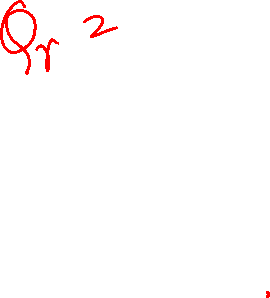 Qr 2